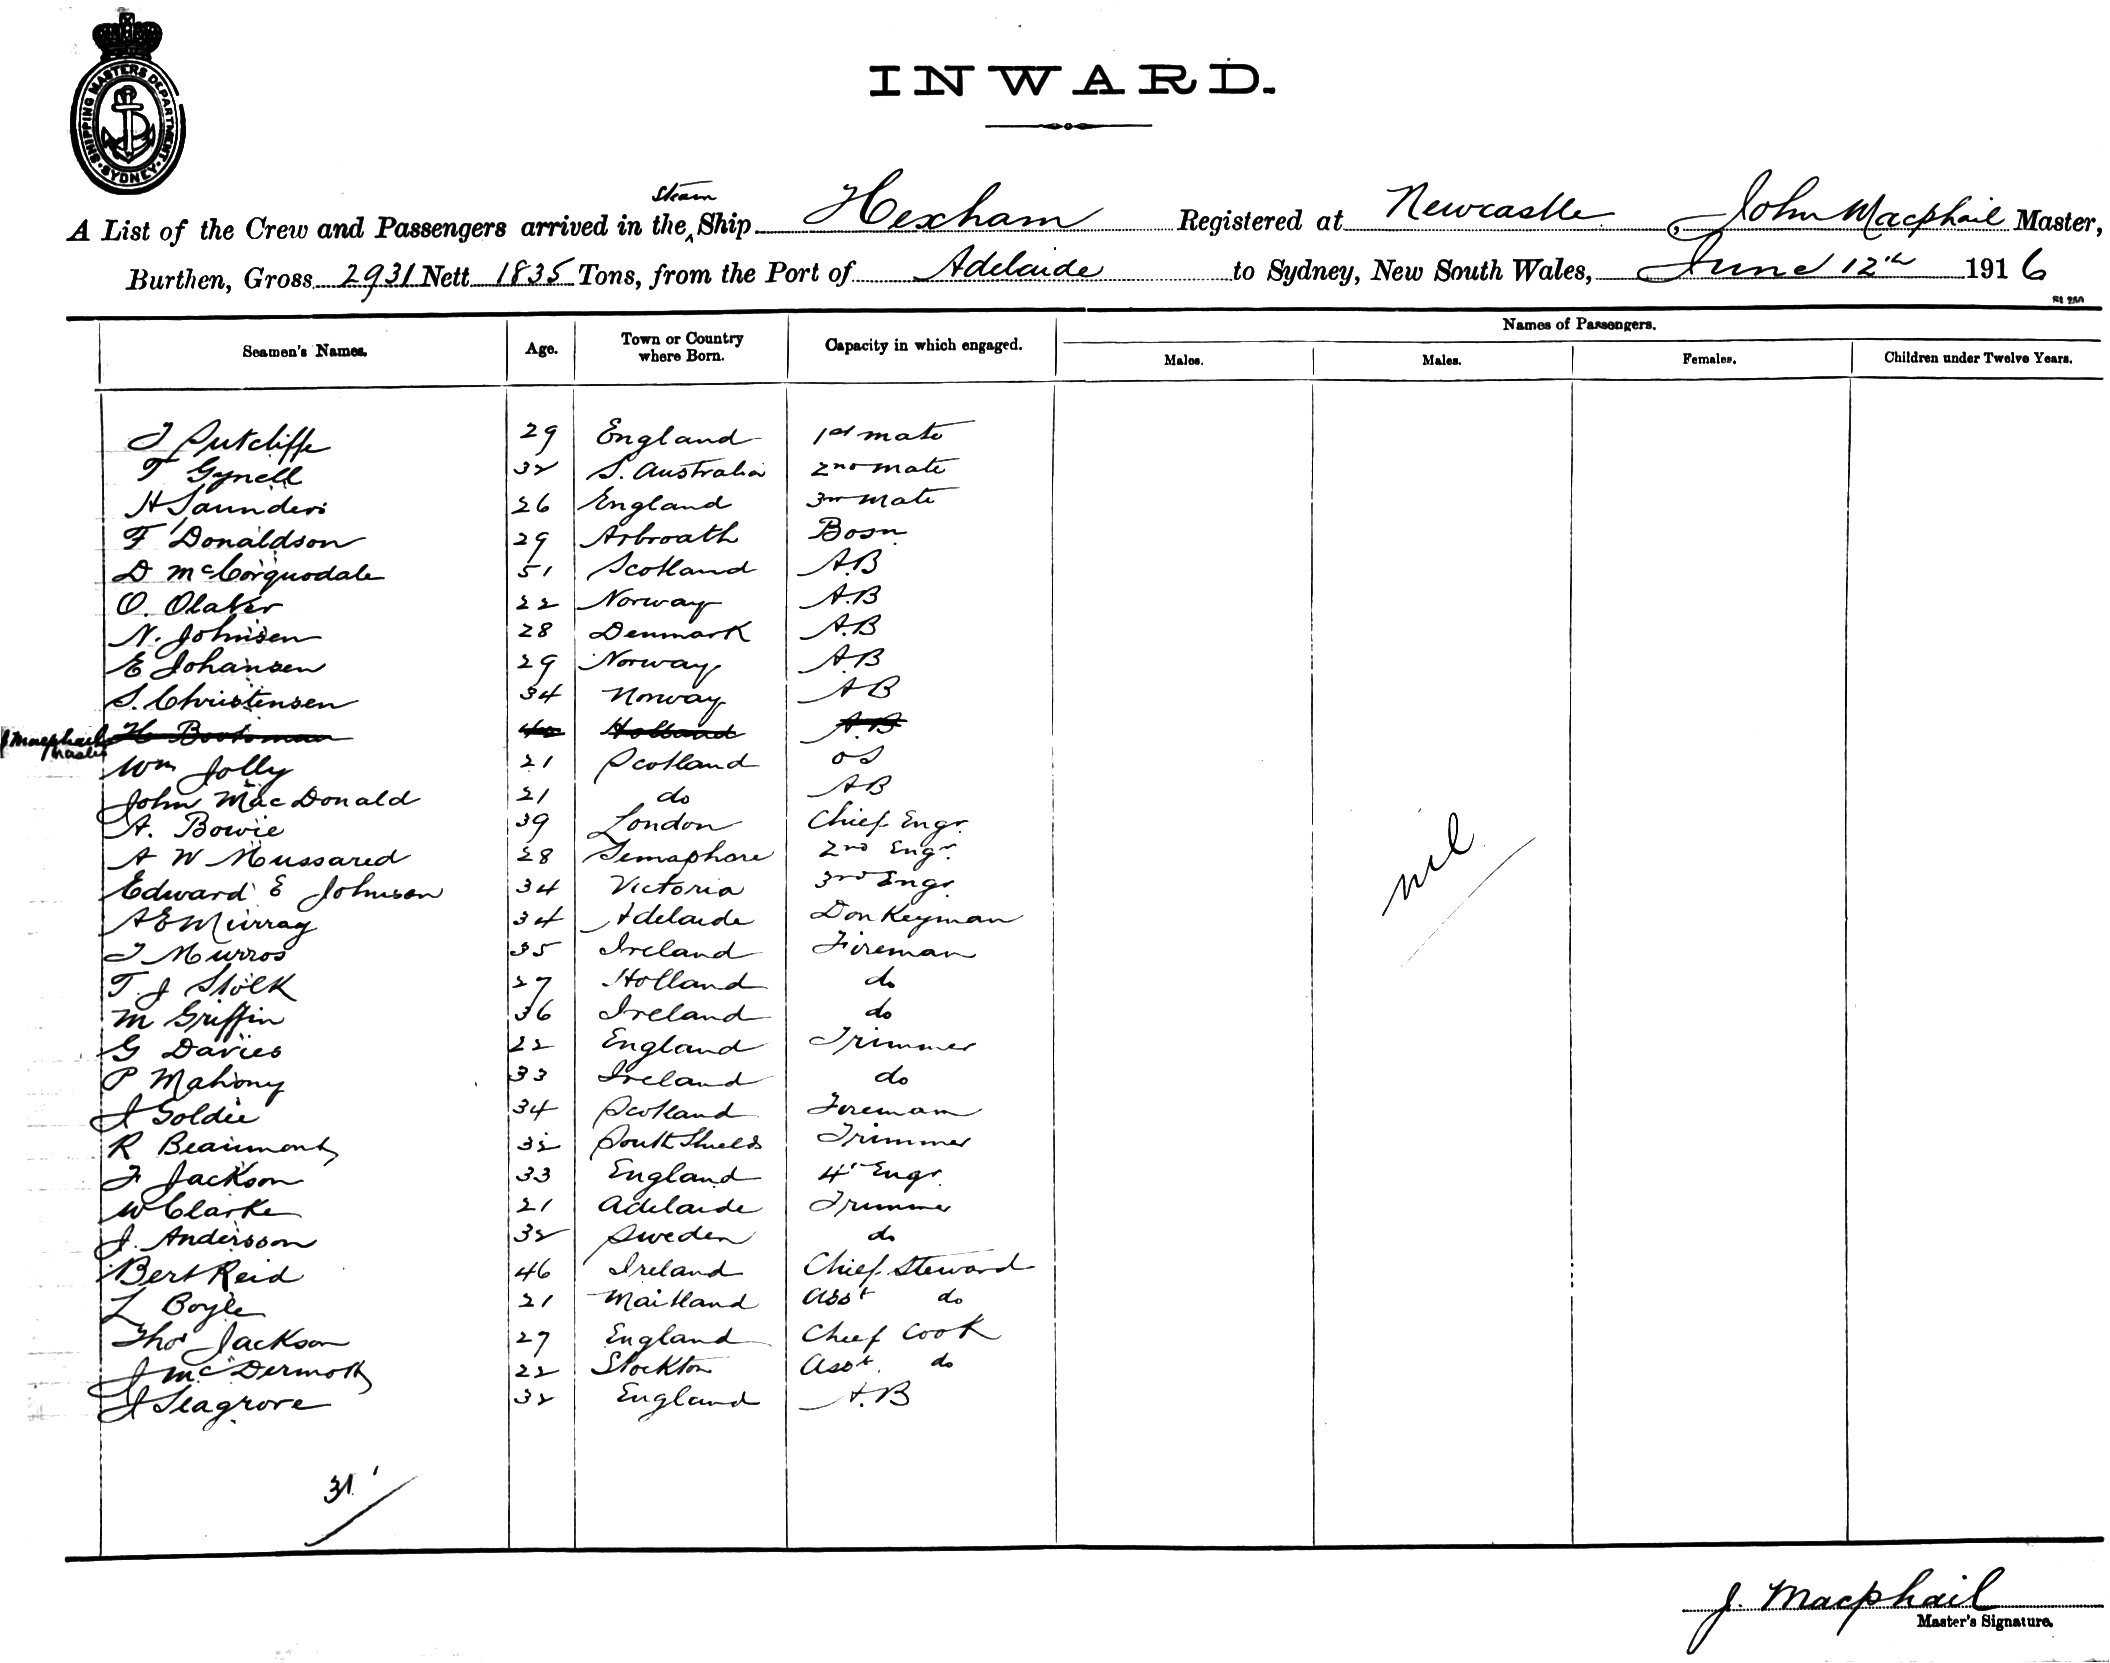 SHIPPING MASTERS DEPARTMENT SYDNEY
INWARD.
Steam
A List of the Crew and Passengers arrived in the ^ Ship Hexham Registered at Newcastle, John Macphail Master,
Burthen, Gross 2931 Nett 1835 Tons, from the Port of Adelaide to Sydney, New South Wales, June 12th 1916
Names of Passengers.
Seamen's Names. Age. Town or Country where Born. Capacity in which engaged. Males. Males. Females. Children under Twelve Years.
J Sutcliffe 29 England 1st mate
T Gynell 32 S. Australia 2nd mate
H Saunders 26 England 3rd mate
F Donaldson 29 Arbroath Bosn
D McCorquodale 51 Scotland A.B
O. Olaker 22 Norway A.B
N. Johnsen 28 Denmark A.B
E Johansen 29 Norway A.B
S. Christensen 34 Norway A B
J Macphail Master H 40 Holland A.B
Wm Jolly 21 Scotland OS
John MacDonald 21 do AB
A. Bowie 39 London Chief Engr.
A W Mussared 28 Semaphore 2nd Engr.
Edward E Johnson 34 Victoria 3rd Engr.
A E Murray 34 Adelaide Donkeyman
J Murros 35 Ireland Fireman
T. J Stolk 27 Holland do
M Griffin 36 Ireland do
G Davies 22 England Trimmer
P Mahony 33 Ireland do
J Goldie 34 Scotland Fireman
R Beaumont 32 South Shields Trimmer
F Jackson 33 England 4th Engr.
W Clarke 21 Adelaide Trimmer
J. Andersson 32 Sweden do
Bert Reid 46 Ireland Chief Steward
L Boyle 21 Maitland Asst do
Thos Jackson 27 England Chief Cook
J McDermott 22 Stockton Asst. do
J Seagrove 32 England A.B
nil
31
J. Macphail
Master's Signature.